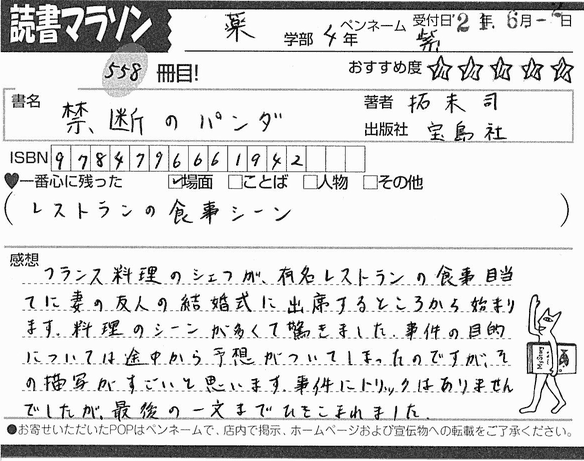 読書マラソン
薬 学部 4 年 ペンネーム 紫 受付日 '21年 6月 日
558 冊目! おすすめ度 ☆☆☆☆☆
書名 禁断のパンダ 著者 拓未 司
出版社 宝島社
ISBN 9784796661942
♥一番心に残った ☑場面 □ことば □人物 □その他
(レストランの食事シーン)
感想
フランス料理のシェフが、有名レストランの食事目当
てに妻の友人の結婚式に出席するところから始まり
ます。料理のシーンが多くて驚きました。事件の目的
については途中から予想がついてしまったのですが、そ
の描写がすごいと思います。事件にトリックはありません
でしたが、最後の一文までひきこまれました。
●お寄せいただいたPOPはペンネームで、店内で掲示、ホームページおよび宣伝物への転載をご了承ください。